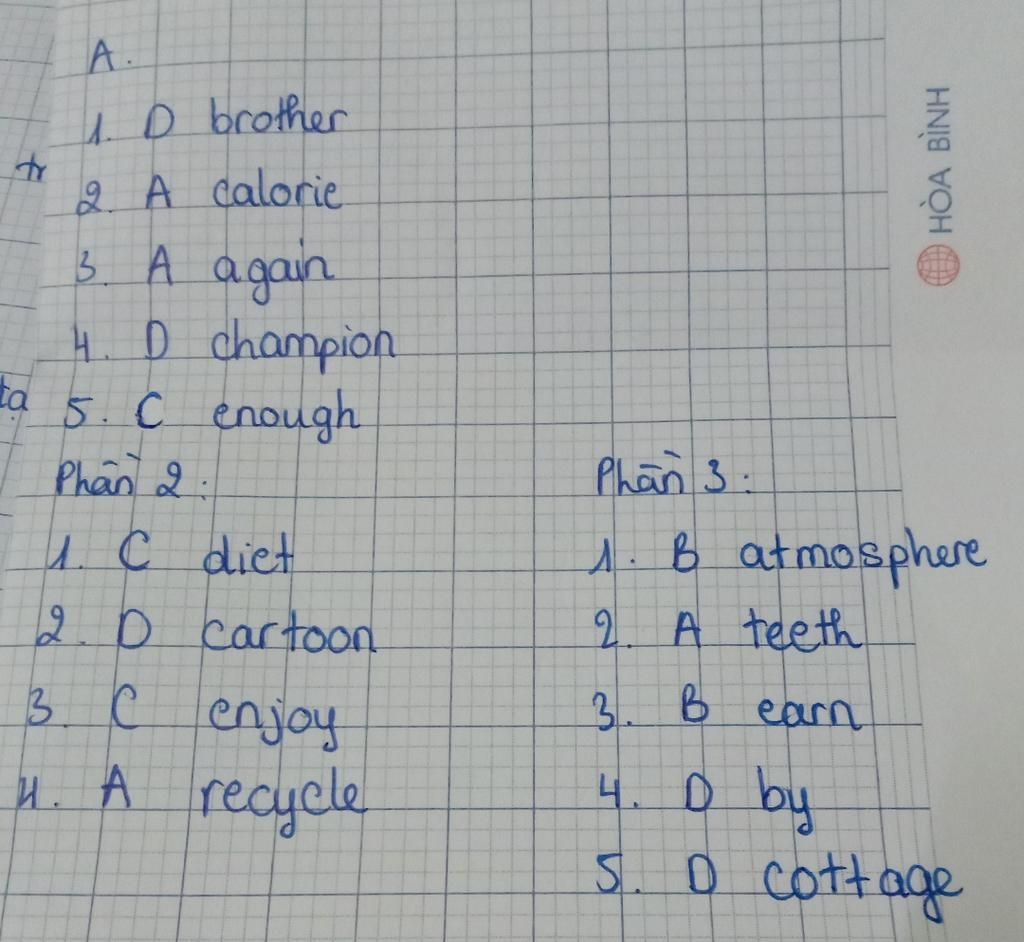 A.
1. D brother
tr
2. A calorie
3. A again
4. D champion
ta
5. C enough
Phần 2:
1. C diet
2. D cartoon
3. C enjoy
4. A recycle
Phần 3:
1. B atmosphere
2. A teeth
3. B earn
4. D by
5. D cottage
HÒA BÌNH